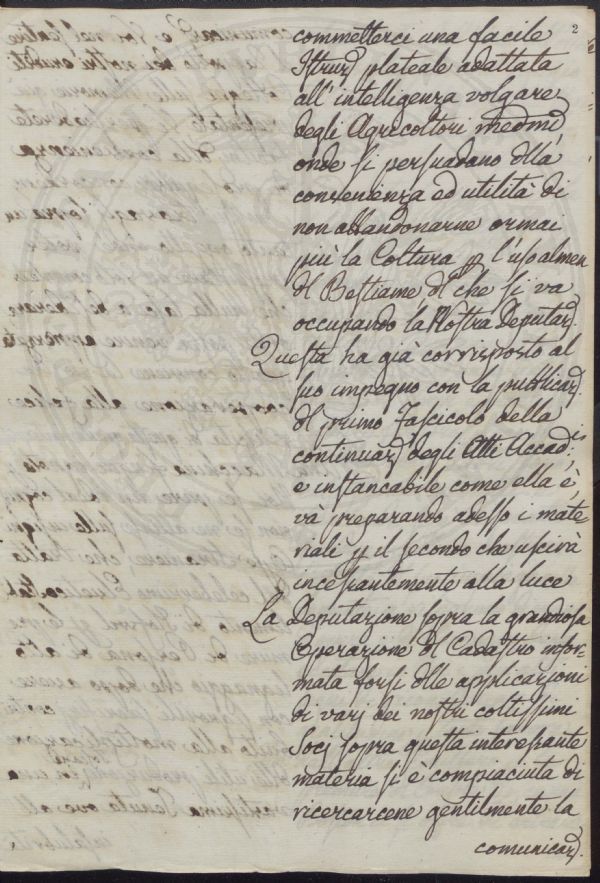 2
commetterci una facile
Istruz. plateale adattata
all'intelligenza volgare
degli Agricoltori medmi
onde si persuadano dlla
convenienza ed utilità di
non abbandonarne ormai
più la Coltura p l'uso almen
dl Bestiame dl che si va
occupando la Nostra Deputaz.
Questa ha già corrisposto al
suo impegno con la pubblicaz.
dl primo Fascicolo della
continuaz. degli Atti Accad.ci
e instancabile come ella è
và preparando adesso i mate-
riali p il secondo che uscirà
incessantemente alla luce
La Deputazione sopra la grandiosa
Operazione dl Cadastro infor-
mata forsi dlle applicazioni
di varj dei nostri coltissimi
Socj sopra questa interessante
materia si è compiaciuta di
ricercarcene gentilmente la
comunicaz.